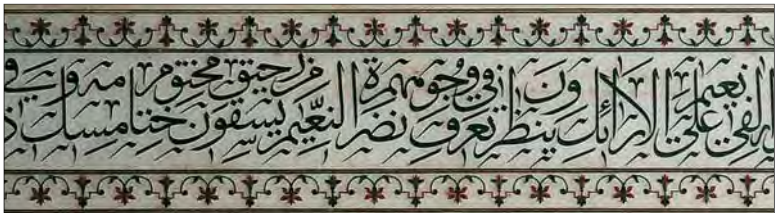 لفي نعيم على الارائك ينظرون تعرف في وجوههم نضرة النعيم يسقون من رحيق مختوم ختامه مسك وفي